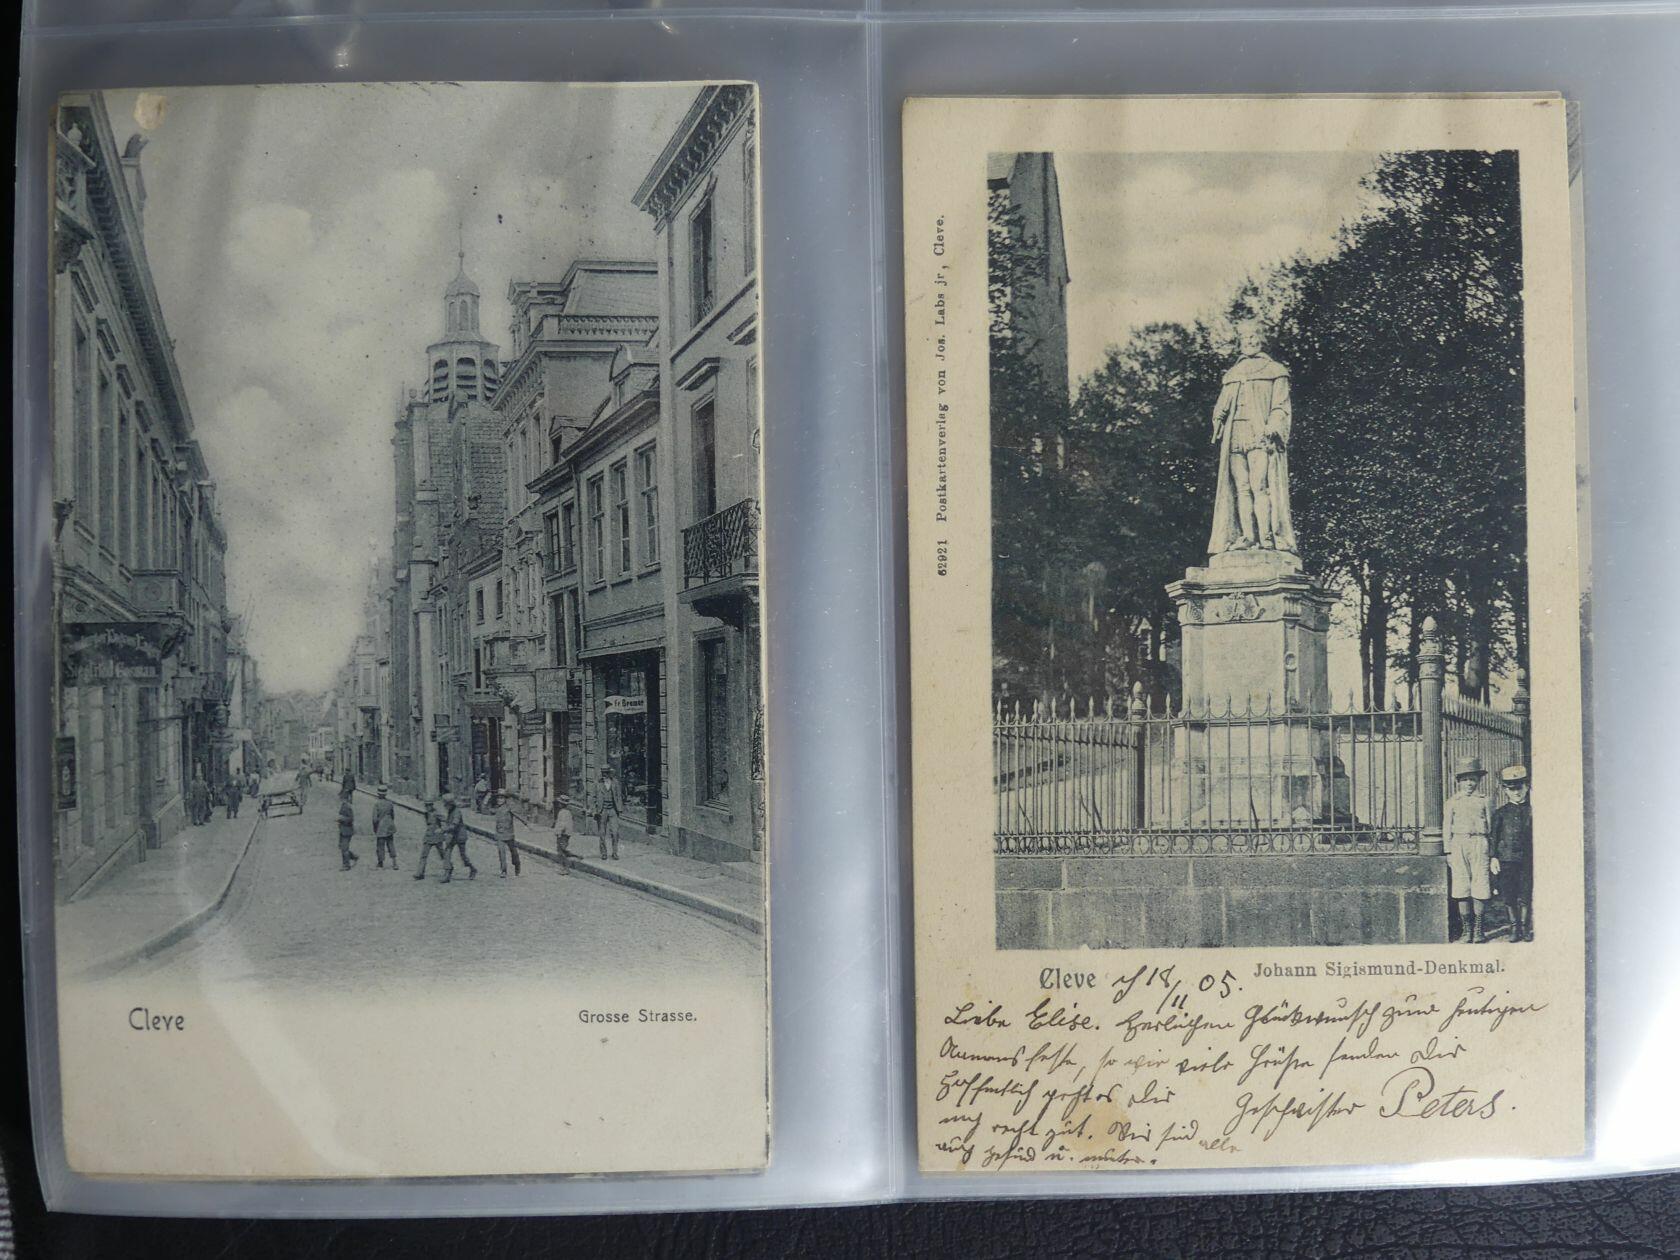 Cleve
Grosse Strasse.
Fr. Bremer
62921 Postkartenverlag von Jos. Labs jr, Cleve.
Cleve d 18/11 05.
Johann Sigismund-Denkmal.
Liebe Elise. Herzlichen Glückwunsch zum heutigen
Namensfeste, so wie viele Grüße senden Dir
Hoffentlich geht es Dir
Geschwister Peters.
noch recht gut. Wir sind alle
auch gesund u. munter.